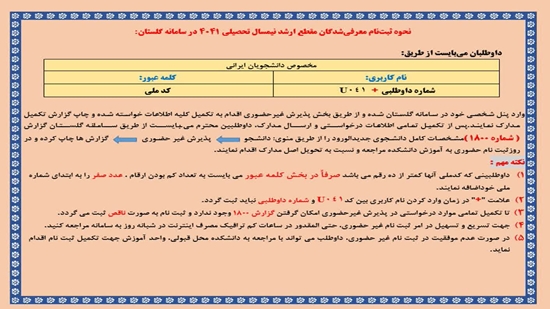 نحوه ثبت‌نام معرفی‌شدگان مقطع ارشد نیمسال تحصیلی ۴۰۴۱ در سامانه گلستان:
داوطلبان می‌بایست از طریق:
مخصوص دانشجویان ایرانی
نام کاربری: کلمه عبور:
شماره داوطلبی + U۰۴۱ کد ملی
وارد پنل شخصی خود در سامانه گلستان شده و از طریق بخش پذیرش غیرحضوری اقدام به تکمیل کلیه اطلاعات خواسته شده و چاپ گزارش تکمیل
مدارک نمایند.پس از تکمیل تمامی اطلاعات درخواستی و ارسال مدارک، داوطلبین محترم می‌بایست از طریق سامانه گلستان گزارش
(شماره ۱۸۰۰)مشخصات کامل دانشجوی جدیدالورود را از طریق منوی: دانشجو پذیرش غیر حضوری گزارش ها چاپ کرده و در
روز ثبت نام حضوری به آموزش دانشکده مراجعه و نسبت به تحویل اصل مدارک اقدام نمایند.
نکته مهم :
۱) داوطلبینی که کدملی آنها کمتر از ده رقم می باشد صرفاً در بخش کلمه عبور می بایست به تعداد کم بودن ارقام ، عدد صفر را به ابتدای شماره
ملی خوداضافه نمایند.
۲) علامت "+" در زمان وارد کردن نام کاربری بین کد U۰۴۱ و شماره داوطلبی نباید ثبت گردد.
۳) تا تکمیل تمامی موارد درخواستی در پذیرش غیرحضوری امکان گرفتن گزارش ۱۸۰۰ وجود ندارد و ثبت نام به صورت ناقص ثبت می گردد.
۴) جهت تسریع و تسهیل در امر ثبت نام غیر حضوری، حتی المقدور در ساعات کم ترافیک مصرف اینترنت در شبانه روز به سامانه مراجعه کنید.
۵) در صورت عدم موفقیت در ثبت نام غیر حضوری، داوطلب می تواند با مراجعه به دانشکده محل قبولی، واحد آموزش جهت تکمیل ثبت نام اقدام
نماید.